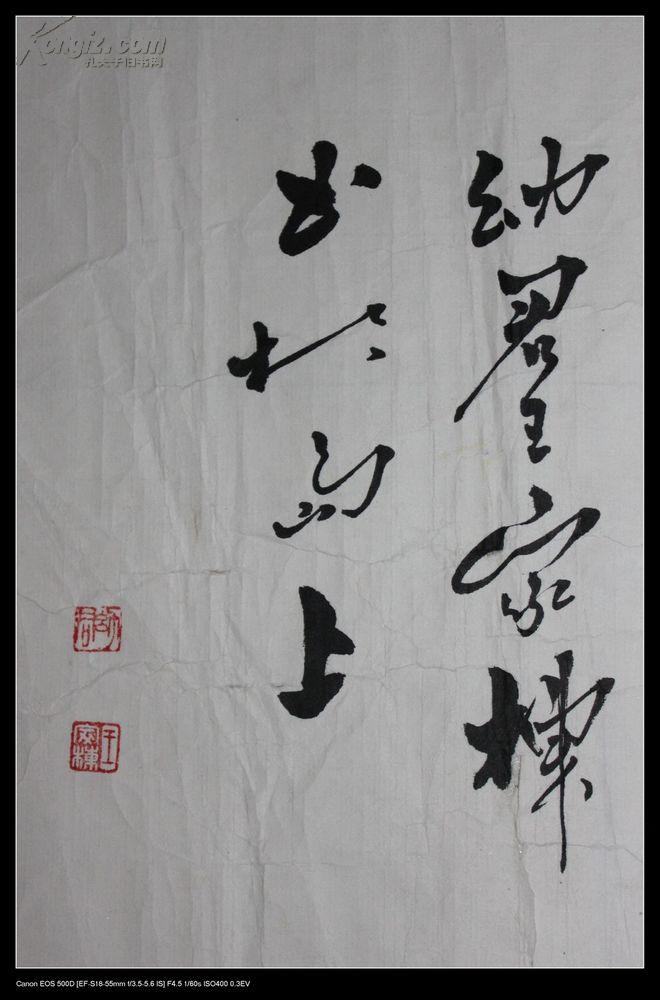 Kongfz.com
孔夫子旧书网
幼君王家棟
书於島上
幼君
王家棟
Canon EOS 500D [EF-S18-55mm f/3.5-5.6 IS] F4.5 1/60s ISO400 0.3EV